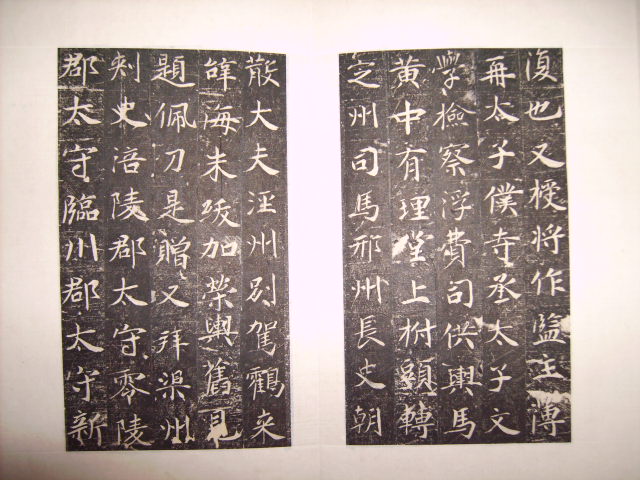 復也又授將作監主溥
再太子僕寺丞太子文
學檢察浮費司供輿馬
黄中有理堂上栟顕轉
定州司馬邢州長史朝
散大夫涇州別駕鸖来
薛海未䟦加榮輿舊見
題佩刀是贈又拜渠州
刾史涪陵郡太守零陵
郡太守臨川郡太守新